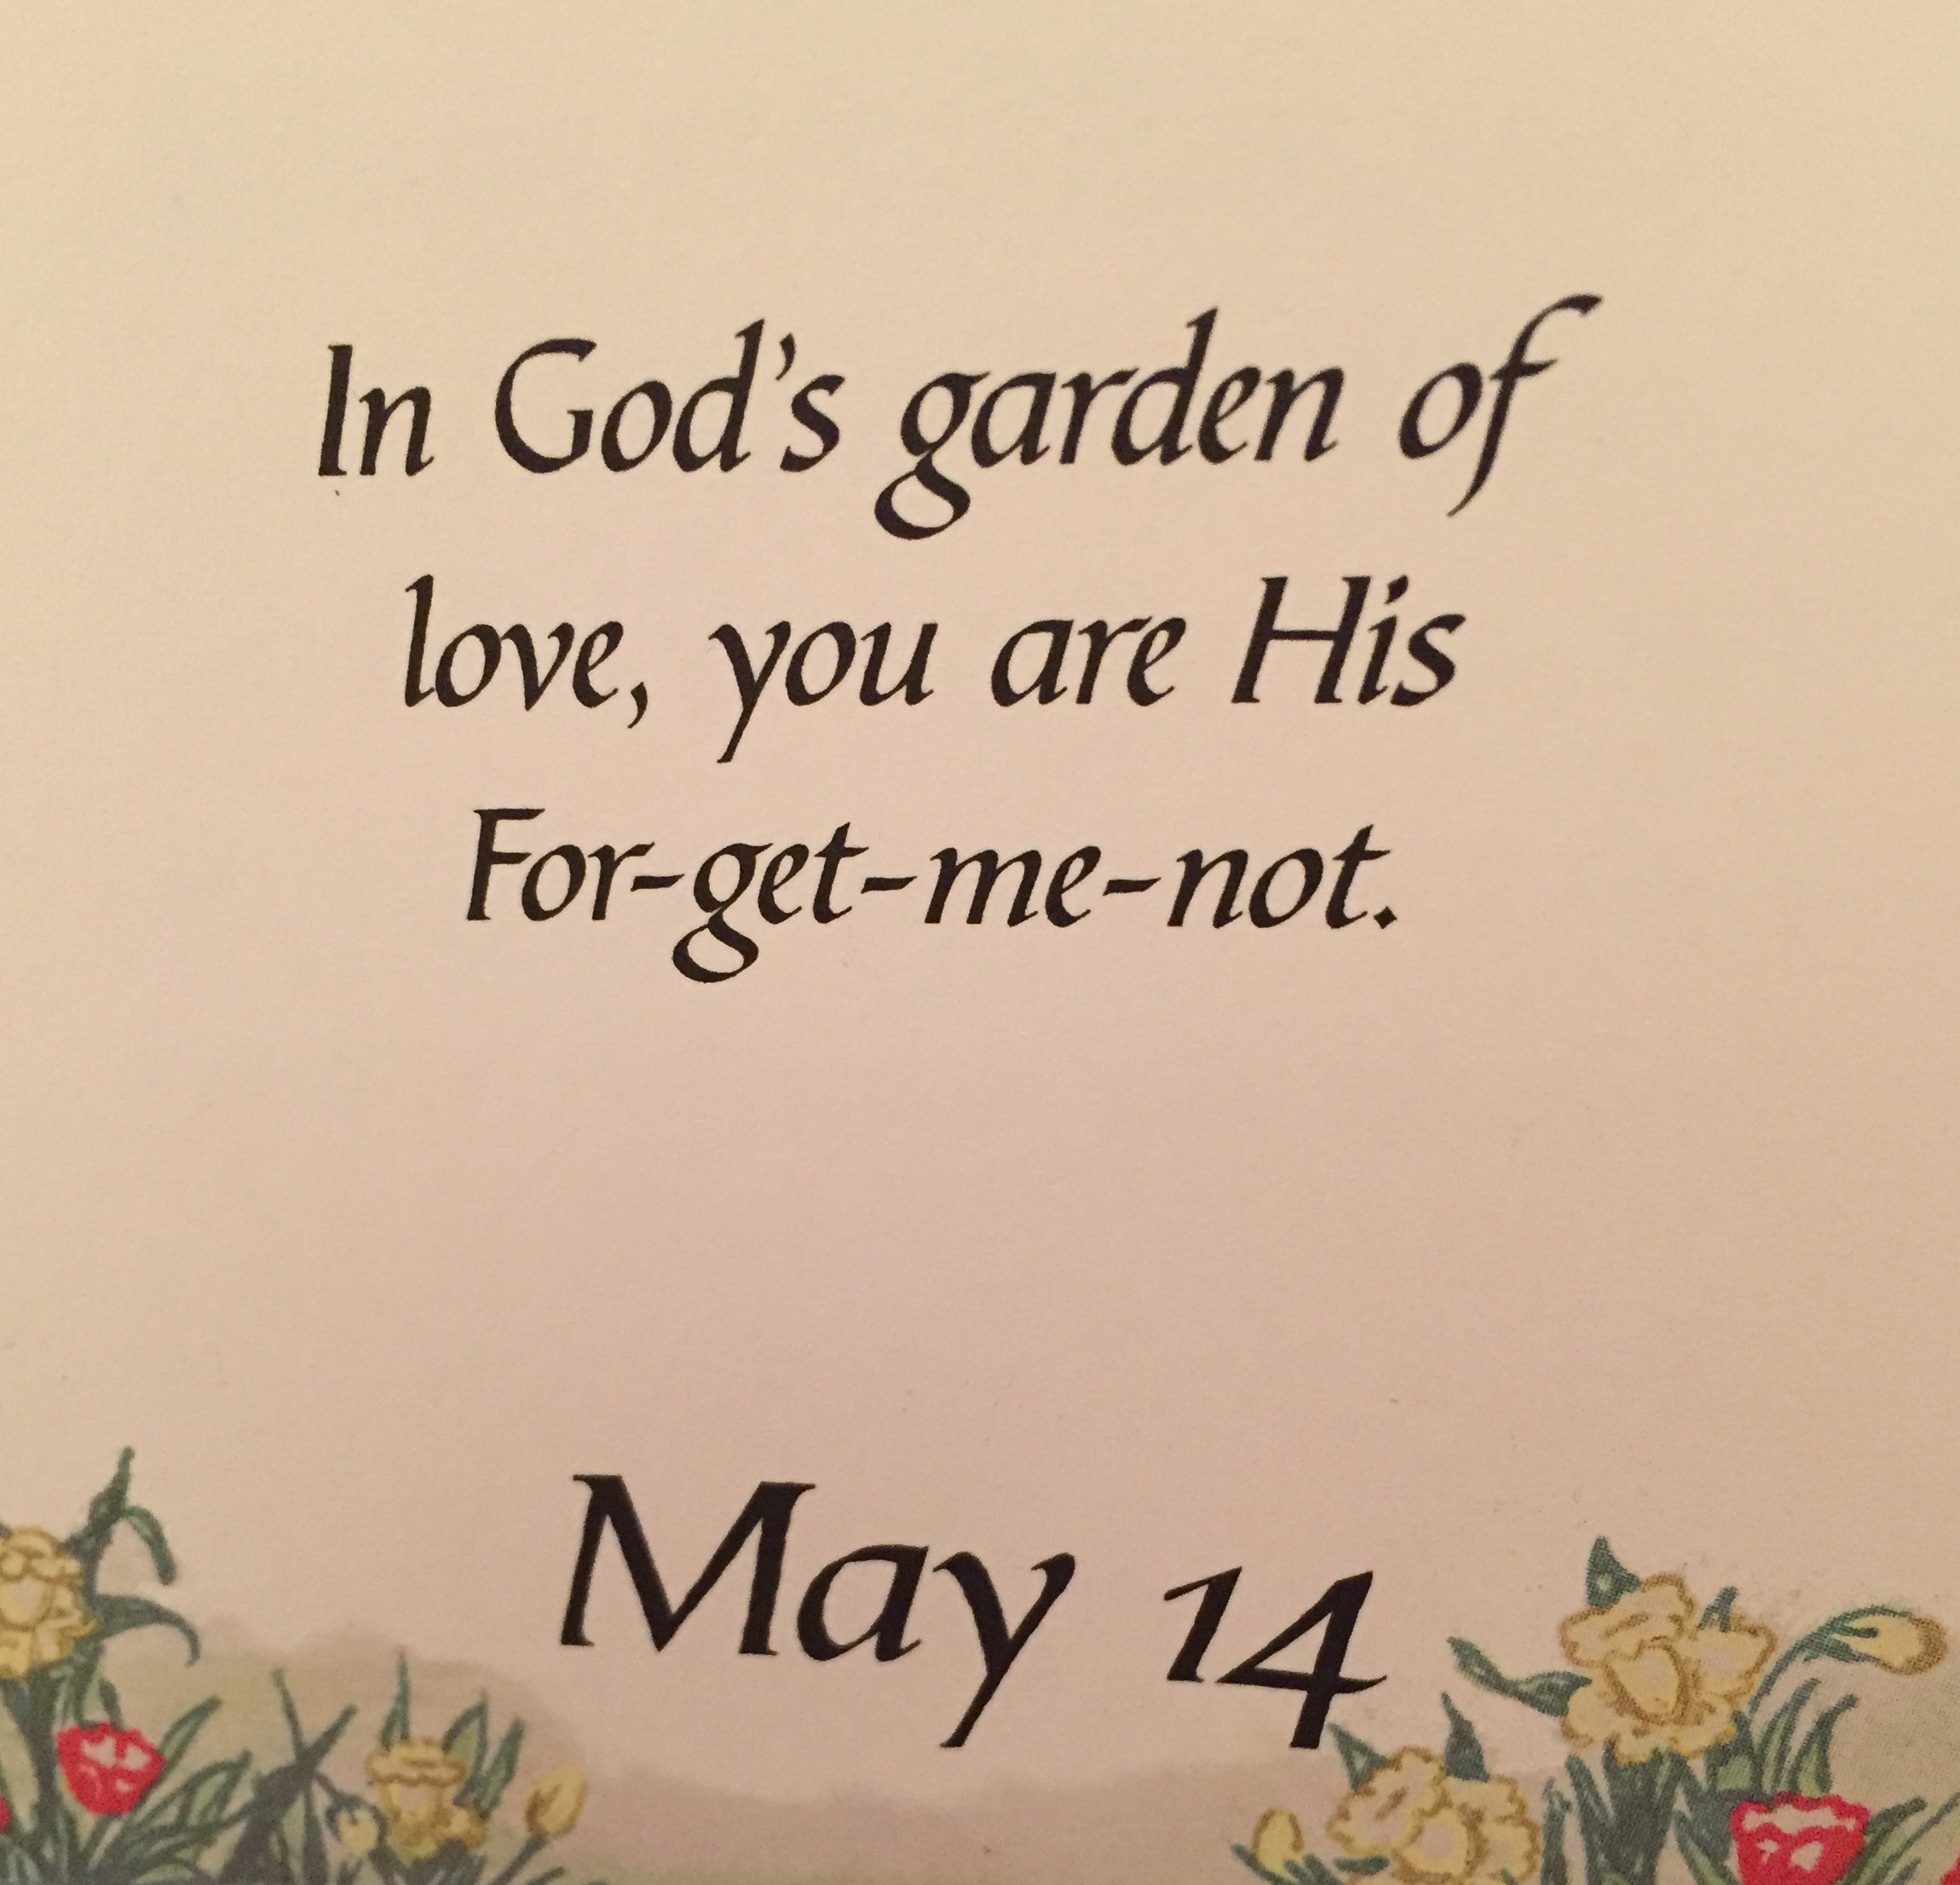 In God's garden of
love, you are His
For-get-me-not.
May 14